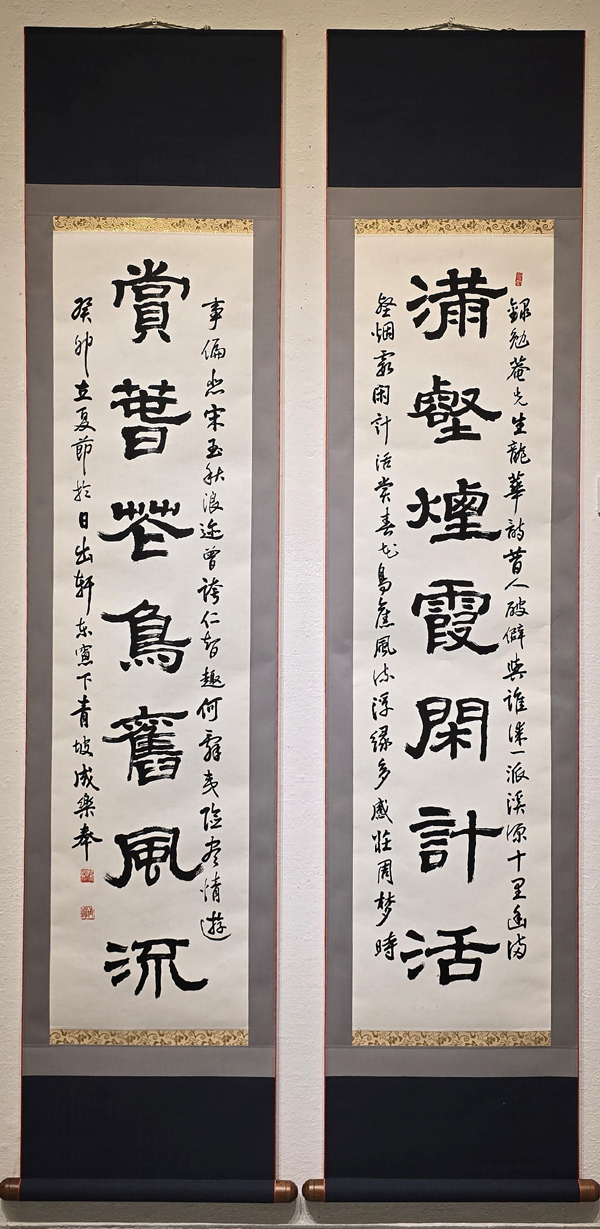 滿壑煙霞閑計活
賞春花鳥舊風流
錄勉菴先生龍華韻昔人破僻與誰儔一派溪源十里幽滿
壑烟霞閑計活賞春花鳥舊風流浮緣多感莊周梦時
事偏悲宋玉秋浪迹曾誇仁智趣何辭夷險尽情遊
癸卯立夏節於日出軒东窓下青坡成樂奉